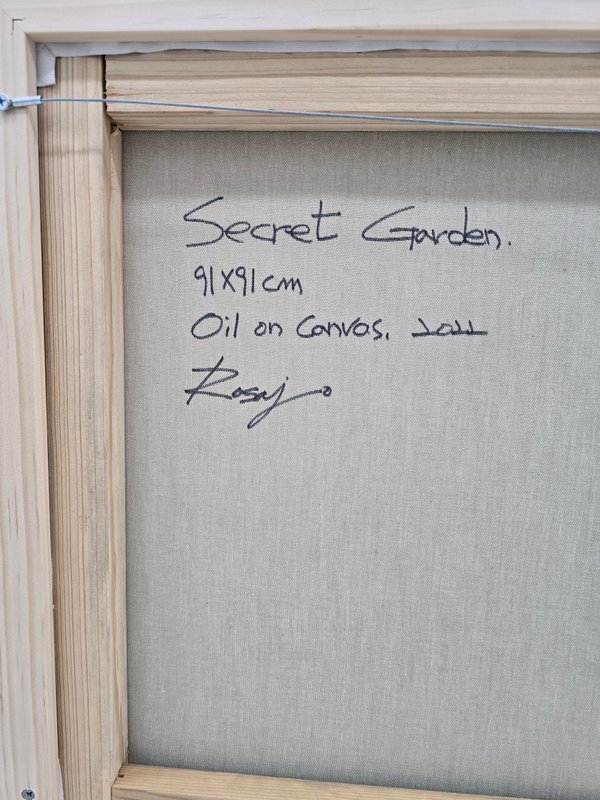 Secret Garden.
91X91cm
Oil on Canvas, 2022
Rosajo